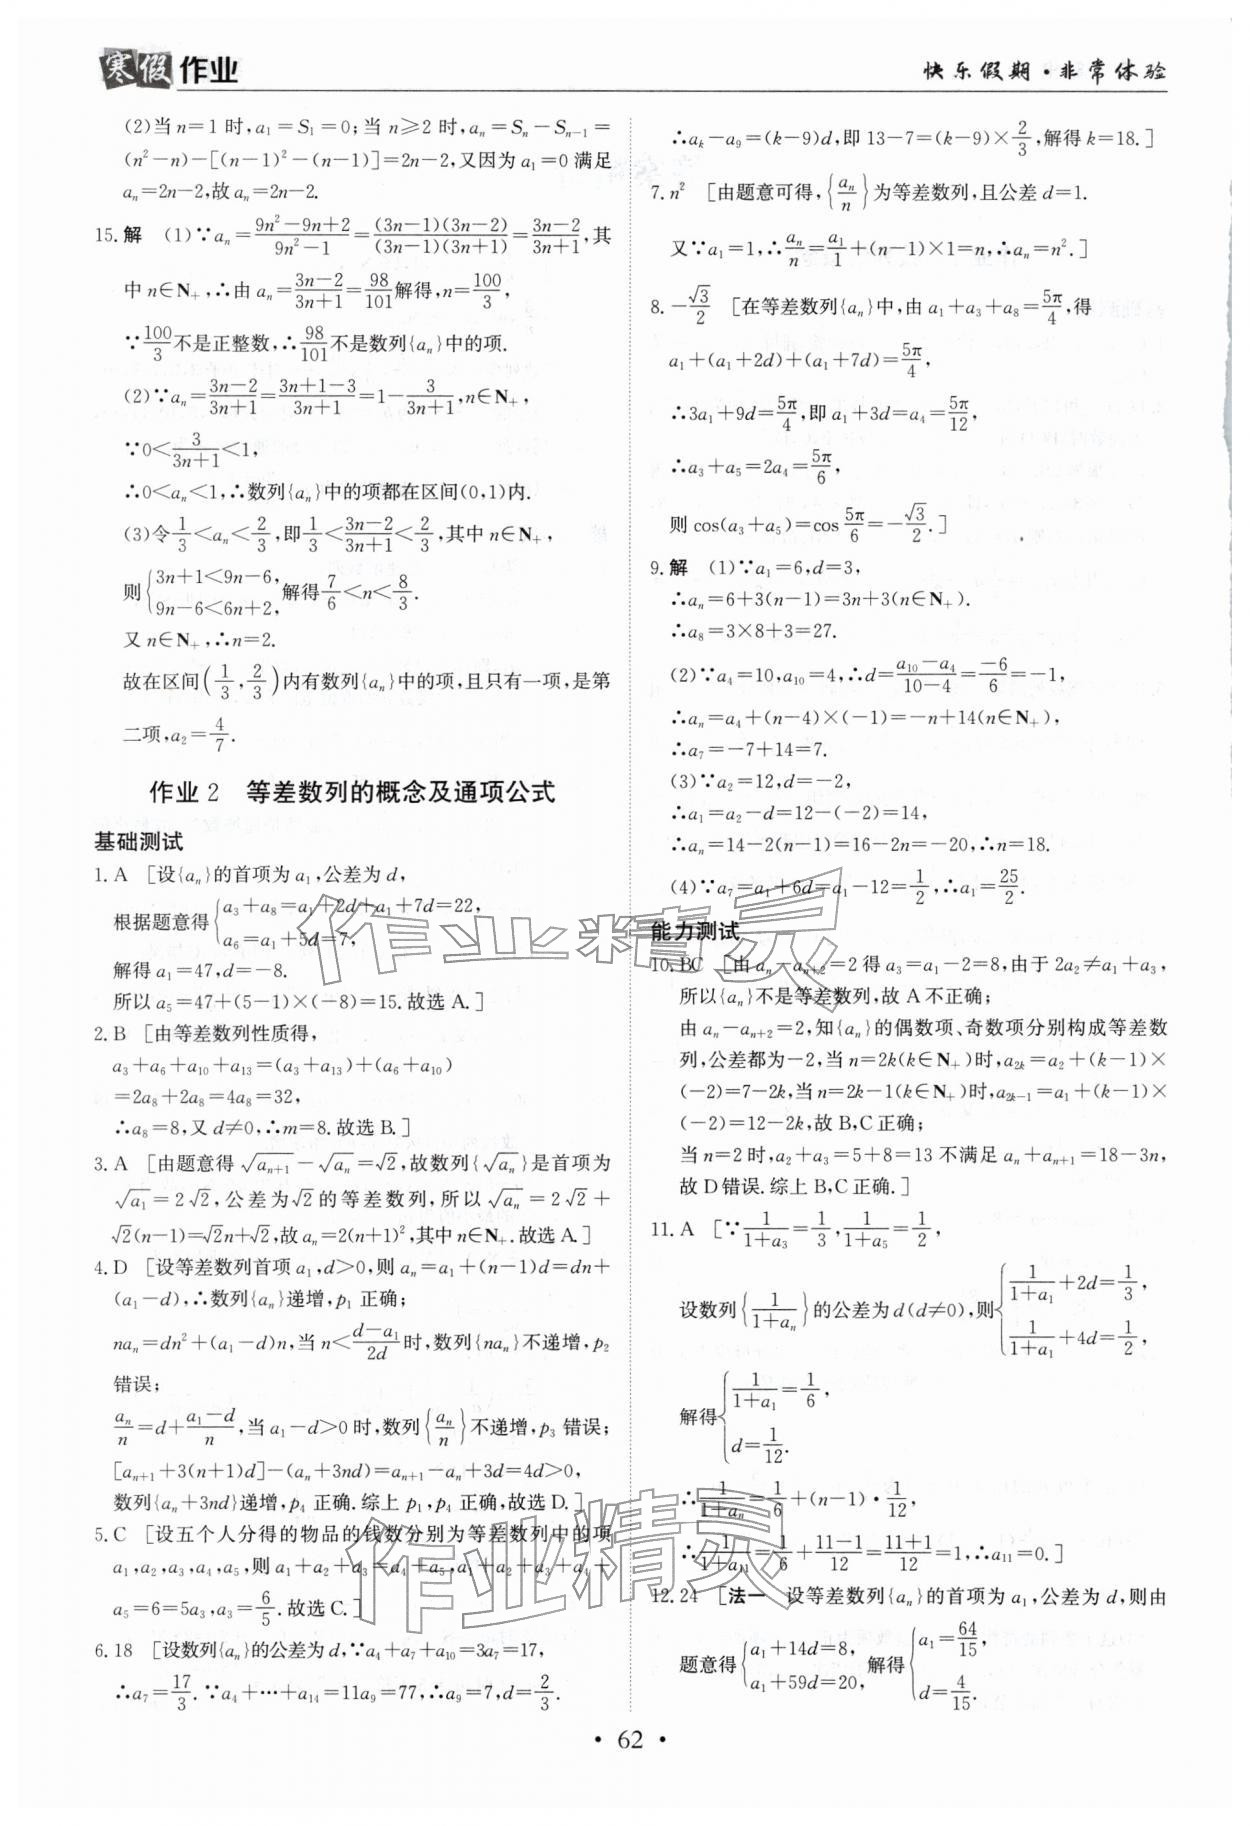 寒假作业
快乐假期·非常体验
(2)当n=1时,a₁=S₁=0;当n≥2时,aₙ=Sₙ-Sₙ₋₁=
(n²-n)-[(n-1)²-(n-1)]=2n-2,又因为a₁=0满足
aₙ=2n-2,故aₙ=2n-2.
15.解 (1)∵aₙ=(9n²-9n+2)/(9n²-1)=((3n-1)(3n-2))/((3n-1)(3n+1))=(3n-2)/(3n+1),其
中n∈N₊,∴由aₙ=(3n-2)/(3n+1)=98/101解得,n=100/3,
∵100/3不是正整数,∴98/101不是数列{aₙ}中的项.
(2)∵aₙ=(3n-2)/(3n+1)=(3n+1-3)/(3n+1)=1-3/(3n+1),n∈N₊,
∵0<3/(3n+1)<1,
∴0<aₙ<1,∴数列{aₙ}中的项都在区间(0,1)内.
(3)令1/3<aₙ<2/3,即1/3<(3n-2)/(3n+1)<2/3,其中n∈N₊,
则{3n+1<9n-6, 9n-6<6n+2,解得7/6<n<8/3.
又n∈N₊,∴n=2.
故在区间(1/3,2/3)内有数列{aₙ}中的项,且只有一项,是第
二项,a₂=4/7.
作业2 等差数列的概念及通项公式
基础测试
1.A [设{aₙ}的首项为a₁,公差为d,
根据题意得{a₃+a₈=a₁+2d+a₁+7d=22, a₆=a₁+5d=7,
解得a₁=47,d=-8.
所以a₅=47+(5-1)×(-8)=15.故选A.]
2.B [由等差数列性质得,
a₃+a₆+a₁₀+a₁₃=(a₃+a₁₃)+(a₆+a₁₀)
=2a₈+2a₈=4a₈=32,
∴a₈=8,又d≠0,∴m=8.故选B.]
3.A [由题意得√aₙ₊₁-√aₙ=√2,故数列{√aₙ}是首项为
√a₁=2√2,公差为√2的等差数列,所以√aₙ=2√2+
√2(n-1)=√2n+√2,故aₙ=2(n+1)²,其中n∈N₊.故选A.]
4.D [设等差数列首项a₁,d>0,则aₙ=a₁+(n-1)d=dn+
(a₁-d),∴数列{aₙ}递增,p₁正确;
naₙ=dn²+(a₁-d)n,当n<(d-a₁)/2d时,数列{naₙ}不递增,p₂
错误;
aₙ/n=d+(a₁-d)/n,当a₁-d>0时,数列{aₙ/n}不递增,p₃错误;
[aₙ₊₁+3(n+1)d]-(aₙ+3nd)=aₙ₊₁-aₙ+3d=4d>0,
数列{aₙ+3nd}递增,p₄正确.综上p₁,p₄正确,故选D.]
5.C [设五个人分得的物品的钱数分别为等差数列中的项
a₁,a₂,a₃,a₄,a₅,则a₁+a₂+a₃=a₄+a₅,a₁+a₂+a₃+a₄+
a₅=6=5a₃,a₃=6/5.故选C.]
6.18 [设数列{aₙ}的公差为d,∵a₄+a₇+a₁₀=3a₇=17,
∴a₇=17/3.∵a₄+…+a₁₄=11a₉=77,∴a₉=7,d=2/3.
∴aₖ-a₉=(k-9)d,即13-7=(k-9)×2/3,解得k=18.]
7.n² [由题意可得,{aₙ/n}为等差数列,且公差d=1.
又∵a₁=1,∴aₙ/n=a₁/1+(n-1)×1=n,∴aₙ=n².]
8.-√3/2 [在等差数列{aₙ}中,由a₁+a₃+a₈=5π/4,得
a₁+(a₁+2d)+(a₁+7d)=5π/4,
∴3a₁+9d=5π/4,即a₁+3d=a₄=5π/12,
∴a₃+a₅=2a₄=5π/6,
则cos(a₃+a₅)=cos5π/6=-√3/2.]
9.解 (1)∵a₁=6,d=3,
∴aₙ=6+3(n-1)=3n+3(n∈N₊).
∴a₈=3×8+3=27.
(2)∵a₄=10,a₁₀=4,∴d=(a₁₀-a₄)/(10-4)=-6/6=-1,
∴aₙ=a₄+(n-4)×(-1)=-n+14(n∈N₊),
∴a₇=-7+14=7.
(3)∵a₂=12,d=-2,
∴a₁=a₂-d=12-(-2)=14,
∴aₙ=14-2(n-1)=16-2n=-20,∴n=18.
(4)∵a₇=a₁+6d=a₁-12=1/2,∴a₁=25/2.
能力测试
10.BC [由aₙ-aₙ₊₂=2得a₃=a₁-2=8,由于2a₂≠a₁+a₃,
所以{aₙ}不是等差数列,故A不正确;
由aₙ-aₙ₊₂=2,知{aₙ}的偶数项、奇数项分别构成等差数
列,公差都为-2,当n=2k(k∈N₊)时,a₂ₖ=a₂+(k-1)×
(-2)=7-2k,当n=2k-1(k∈N₊)时,a₂ₖ₋₁=a₁+(k-1)×
(-2)=12-2k,故B,C正确;
当n=2时,a₂+a₃=5+8=13不满足aₙ+aₙ₊₁=18-3n,
故D错误.综上B,C正确.]
11.A [∵1/(1+a₃)=1/3,1/(1+a₅)=1/2,
设数列{1/(1+aₙ)}的公差为d(d≠0),则{1/(1+a₁)+2d=1/3, 1/(1+a₁)+4d=1/2,
解得{1/(1+a₁)=1/6, d=1/12.
∴1/(1+aₙ)=1/6+(n-1)·1/12,
∴1/(1+a₁₁)=1/6+(11-1)/12=(11+1)/12=1,∴a₁₁=0.]
12.24 [法一 设等差数列{aₙ}的首项为a₁,公差为d,则由
题意得{a₁+14d=8, a₁+59d=20,解得{a₁=64/15, d=4/15.
·62·
作业精灵
作业精灵